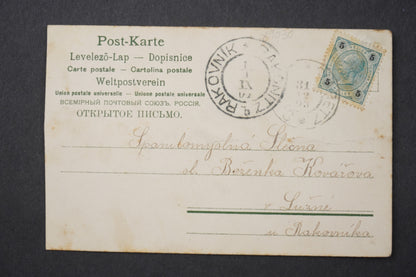 Post-Karte
Levelező-Lap — Dopisnice
Carte postale — Cartolina postale
Weltpostverein
Union postale universelle — Unione postale universale
ВСЕМІРНЫЙ ПОЧТОВЫЙ СОЮЗЪ. РОССІЯ.
ОТКРЫТОЕ ПИСЬМО.
RAKOVNÍK
RAKONITZ
IX
5 5
5 5
Slečna
sl. Boženka Kovářova
v Lužné
u Rakovníka